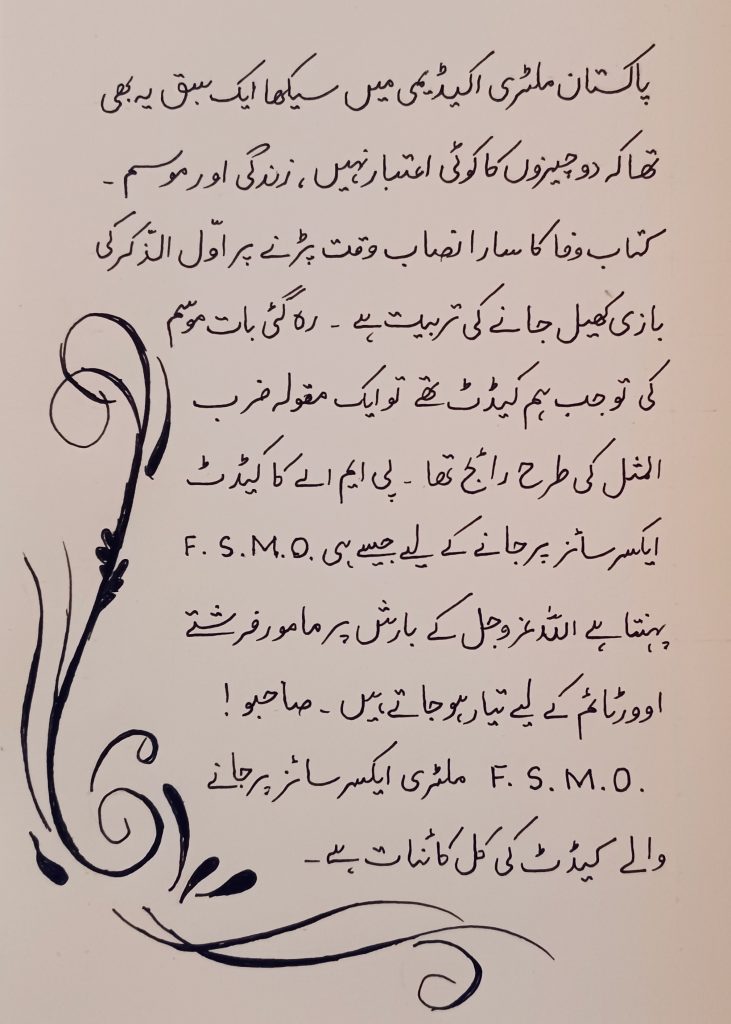 پاکستان ملٹری اکیڈیمی میں سیکھا ایک سبق یہ بھی
تھا کہ دو چیزوں کا کوئی اعتبار نہیں، زندگی اور موسم ۔
کتاب وفا کا سارا نصاب وقت پڑنے پر اوّل الذّکر کی
بازی کھیل جانے کی تربیت ہے ۔ رہ گئی بات موسم
کی تو جب ہم کیڈٹ تھے تو ایک مقولہ ضرب
المثل کی طرح رائج تھا ۔ پی ایم اے کا کیڈٹ
ایکسرسائز پر جانے کے لیے جیسے ہی F. S.M.O.
پہنتا ہے اللہ عزوجل کے بارش پر مامور فرشتے
اوورٹائم کے لیے تیار ہو جاتے ہیں ۔ صاحبو !
F. S. M. O. ملٹری ایکسرسائز پر جانے
والے کیڈٹ کی کل کائنات ہے ۔